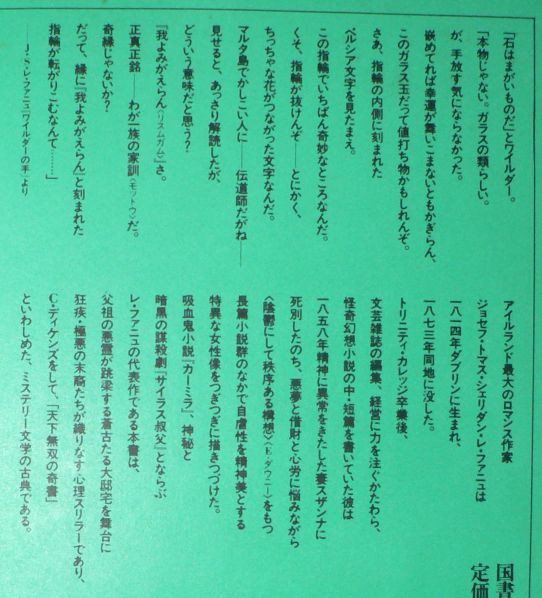 「石はまがいものだ」とワイルダー。
「本物じゃない。ガラスの類らしい。
が、手放す気にならなかった。
嵌めてれば幸運が舞いこまないともかぎらん、
このガラス玉だって値打ち物かもしれんぞ。
さあ、指輪の内側に刻まれた
ペルシア文字を見たまえ。
この指輪でいちばん奇妙なところなんだ。
くそ、指輪が抜けんぞ――とにかく、
ちっちゃな花がつながった文字なんだ。
マルタ島でかしこい人に――伝道師だがね――
見せると、あっさり解読したが、
どういう意味だと思う?
『我よみがえらん〈リスルガム〉』さ。
正真正銘――わが一族の家訓〈モットウ〉だ。
奇縁じゃないか?
だって、縁に『我よみがえらん』と刻まれた
指輪が転がりこむなんて……」
――J・S・レ・ファニュ『ワイルダーの手』より
アイルランド最大のロマンス作家
ジョセフ・トマス・シェリダン・レ・ファニュは
一八一四年ダブリンに生まれ、
一八七三年同地に没した。
トリニティ・カレッジ卒業後、
文芸雑誌の編集、経営に力を注ぐかたわら、
怪奇幻想小説の中・短篇を書いていた彼は
一八五八年精神に異常をきたした妻スザンナに
死別したのち、悪夢と借財と心労に悩みながら
〈陰鬱にして秩序ある構想〉(E・ダウニー)をもつ
長篇小説群のなかで自虐性を精神美とする
特異な女性像をつぎつぎに描きつづけた。
吸血鬼小説『カーミラ』、神秘と
暗黒の謀殺劇『サイラス叔父』とならぶ
レ・ファニュの代表作である本書は、
父祖の悪霊が跳梁する蒼古たる大邸宅を舞台に
狂疾・極悪の末裔たちが織りなす心理スリラーであり、
C・ディケンズをして、「天下無双の奇書」
といわしめた、ミステリー文学の古典である。
国書
定価